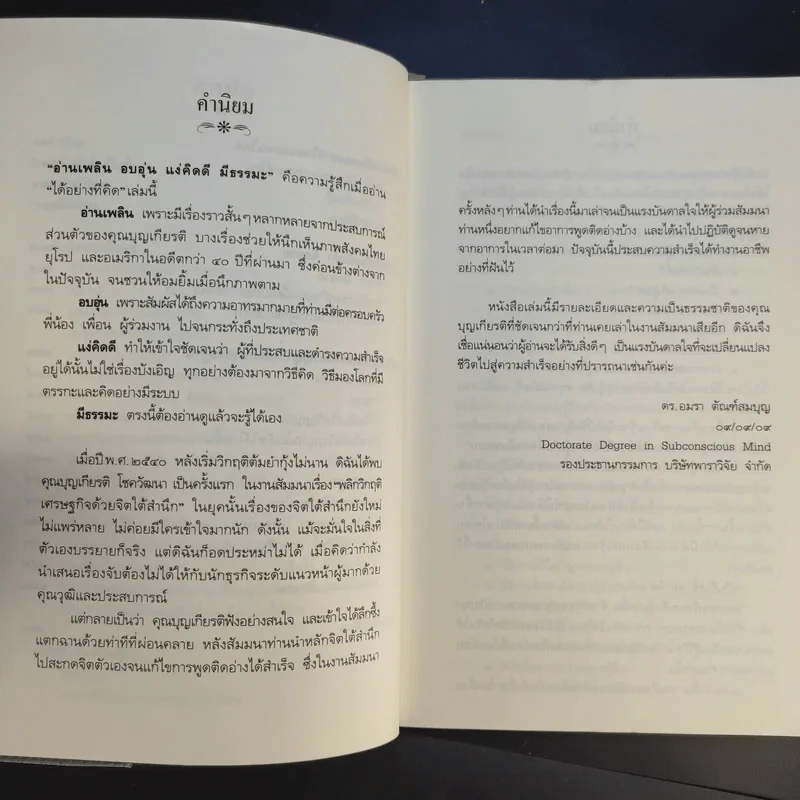 คำนิยม
"อ่านเพลิน อบอุ่น แง่คิดดี มีธรรมะ" คือความรู้สึกเมื่ออ่าน
"ได้อย่างที่คิด"เล่มนี้
อ่านเพลิน เพราะมีเรื่องราวสั้นๆหลากหลายจากประสบการณ์
ส่วนตัวของคุณบุญเกียรติ บางเรื่องช่วยให้นึกเห็นภาพสังคมไทย
ยุโรป และอเมริกาในอดีตกว่า ๔๐ ปีที่ผ่านมา ซึ่งค่อนข้างต่างจาก
ในปัจจุบัน จนชวนให้อมยิ้มเมื่อนึกภาพตาม
อบอุ่น เพราะสัมผัสได้ถึงความอาทรมากมายที่ท่านมีต่อครอบครัว
พี่น้อง เพื่อน ผู้ร่วมงาน ไปจนกระทั่งถึงประเทศชาติ
แง่คิดดี ทำให้เข้าใจชัดเจนว่า ผู้ที่ประสบและดำรงความสำเร็จ
อยู่ได้นั้นไม่ใช่เรื่องบังเอิญ ทุกอย่างต้องมาจากวิธีคิด วิธีมองโลกที่มี
ตรรกะและคิดอย่างมีระบบ
มีธรรมะ ตรงนี้ต้องอ่านดูแล้วจะรู้ได้เอง
เมื่อปีพ.ศ.๒๕๔๐ หลังเริ่มวิกฤติต้มยำกุ้งไม่นาน ดิฉันได้พบ
คุณบุญเกียรติ โชควัฒนา เป็นครั้งแรก ในงานสัมมนาเรื่อง"พลิกวิกฤติ
เศรษฐกิจด้วยจิตใต้สำนึก" ในยุคนั้นเรื่องของจิตใต้สำนึกยังใหม่
ไม่แพร่หลาย ไม่ค่อยมีใครเข้าใจมากนัก ดังนั้น แม้จะมั่นใจในสิ่งที่
ตัวเองบรรยายก็จริง แต่ดิฉันก็อดประหม่าไม่ได้ เมื่อคิดว่ากำลัง
นำเสนอเรื่องจับต้องไม่ได้ให้กับนักธุรกิจระดับแนวหน้าผู้มากด้วย
คุณวุฒิและประสบการณ์
แต่กลายเป็นว่า คุณบุญเกียรติฟังอย่างสนใจ และเข้าใจได้ลึกซึ้ง
แตกฉานด้วยท่าทีที่ผ่อนคลาย หลังสัมมนาท่านนำหลักจิตใต้สำนึก
ไปสะกดจิตตัวเองจนแก้ไขการพูดติดอ่างได้สำเร็จ ซึ่งในงานสัมมนา
ครั้งหลังๆท่านได้นำเรื่องนี้มาเล่าจนเป็นแรงบันดาลใจให้ผู้ร่วมสัมมนา
ท่านหนึ่งอยากแก้ไขอาการพูดติดอ่างบ้าง และได้นำไปปฏิบัติดูจนหาย
จากอาการในเวลาต่อมา ปัจจุบันนี้ประสบความสำเร็จได้ทำงานอาชีพ
อย่างที่ฝันไว้
หนังสือเล่มนี้มีรายละเอียดและความเป็นธรรมชาติของคุณ
บุญเกียรติที่ชัดเจนกว่าที่ท่านเคยเล่าในงานสัมมนาเสียอีก ดิฉันจึง
เชื่อแน่นอนว่าผู้อ่านจะได้รับสิ่งดีๆ เป็นแรงบันดาลใจที่จะเปลี่ยนแปลง
ชีวิตไปสู่ความสำเร็จอย่างที่ปรารถนาเช่นกันค่ะ
ดร.อมรา ตัณฑ์สมบุญ
๐๙/๐๙/๐๙
Doctorate Degree in Subconscious Mind
รองประธานกรรมการ บริษัทพาราวิจัย จำกัด